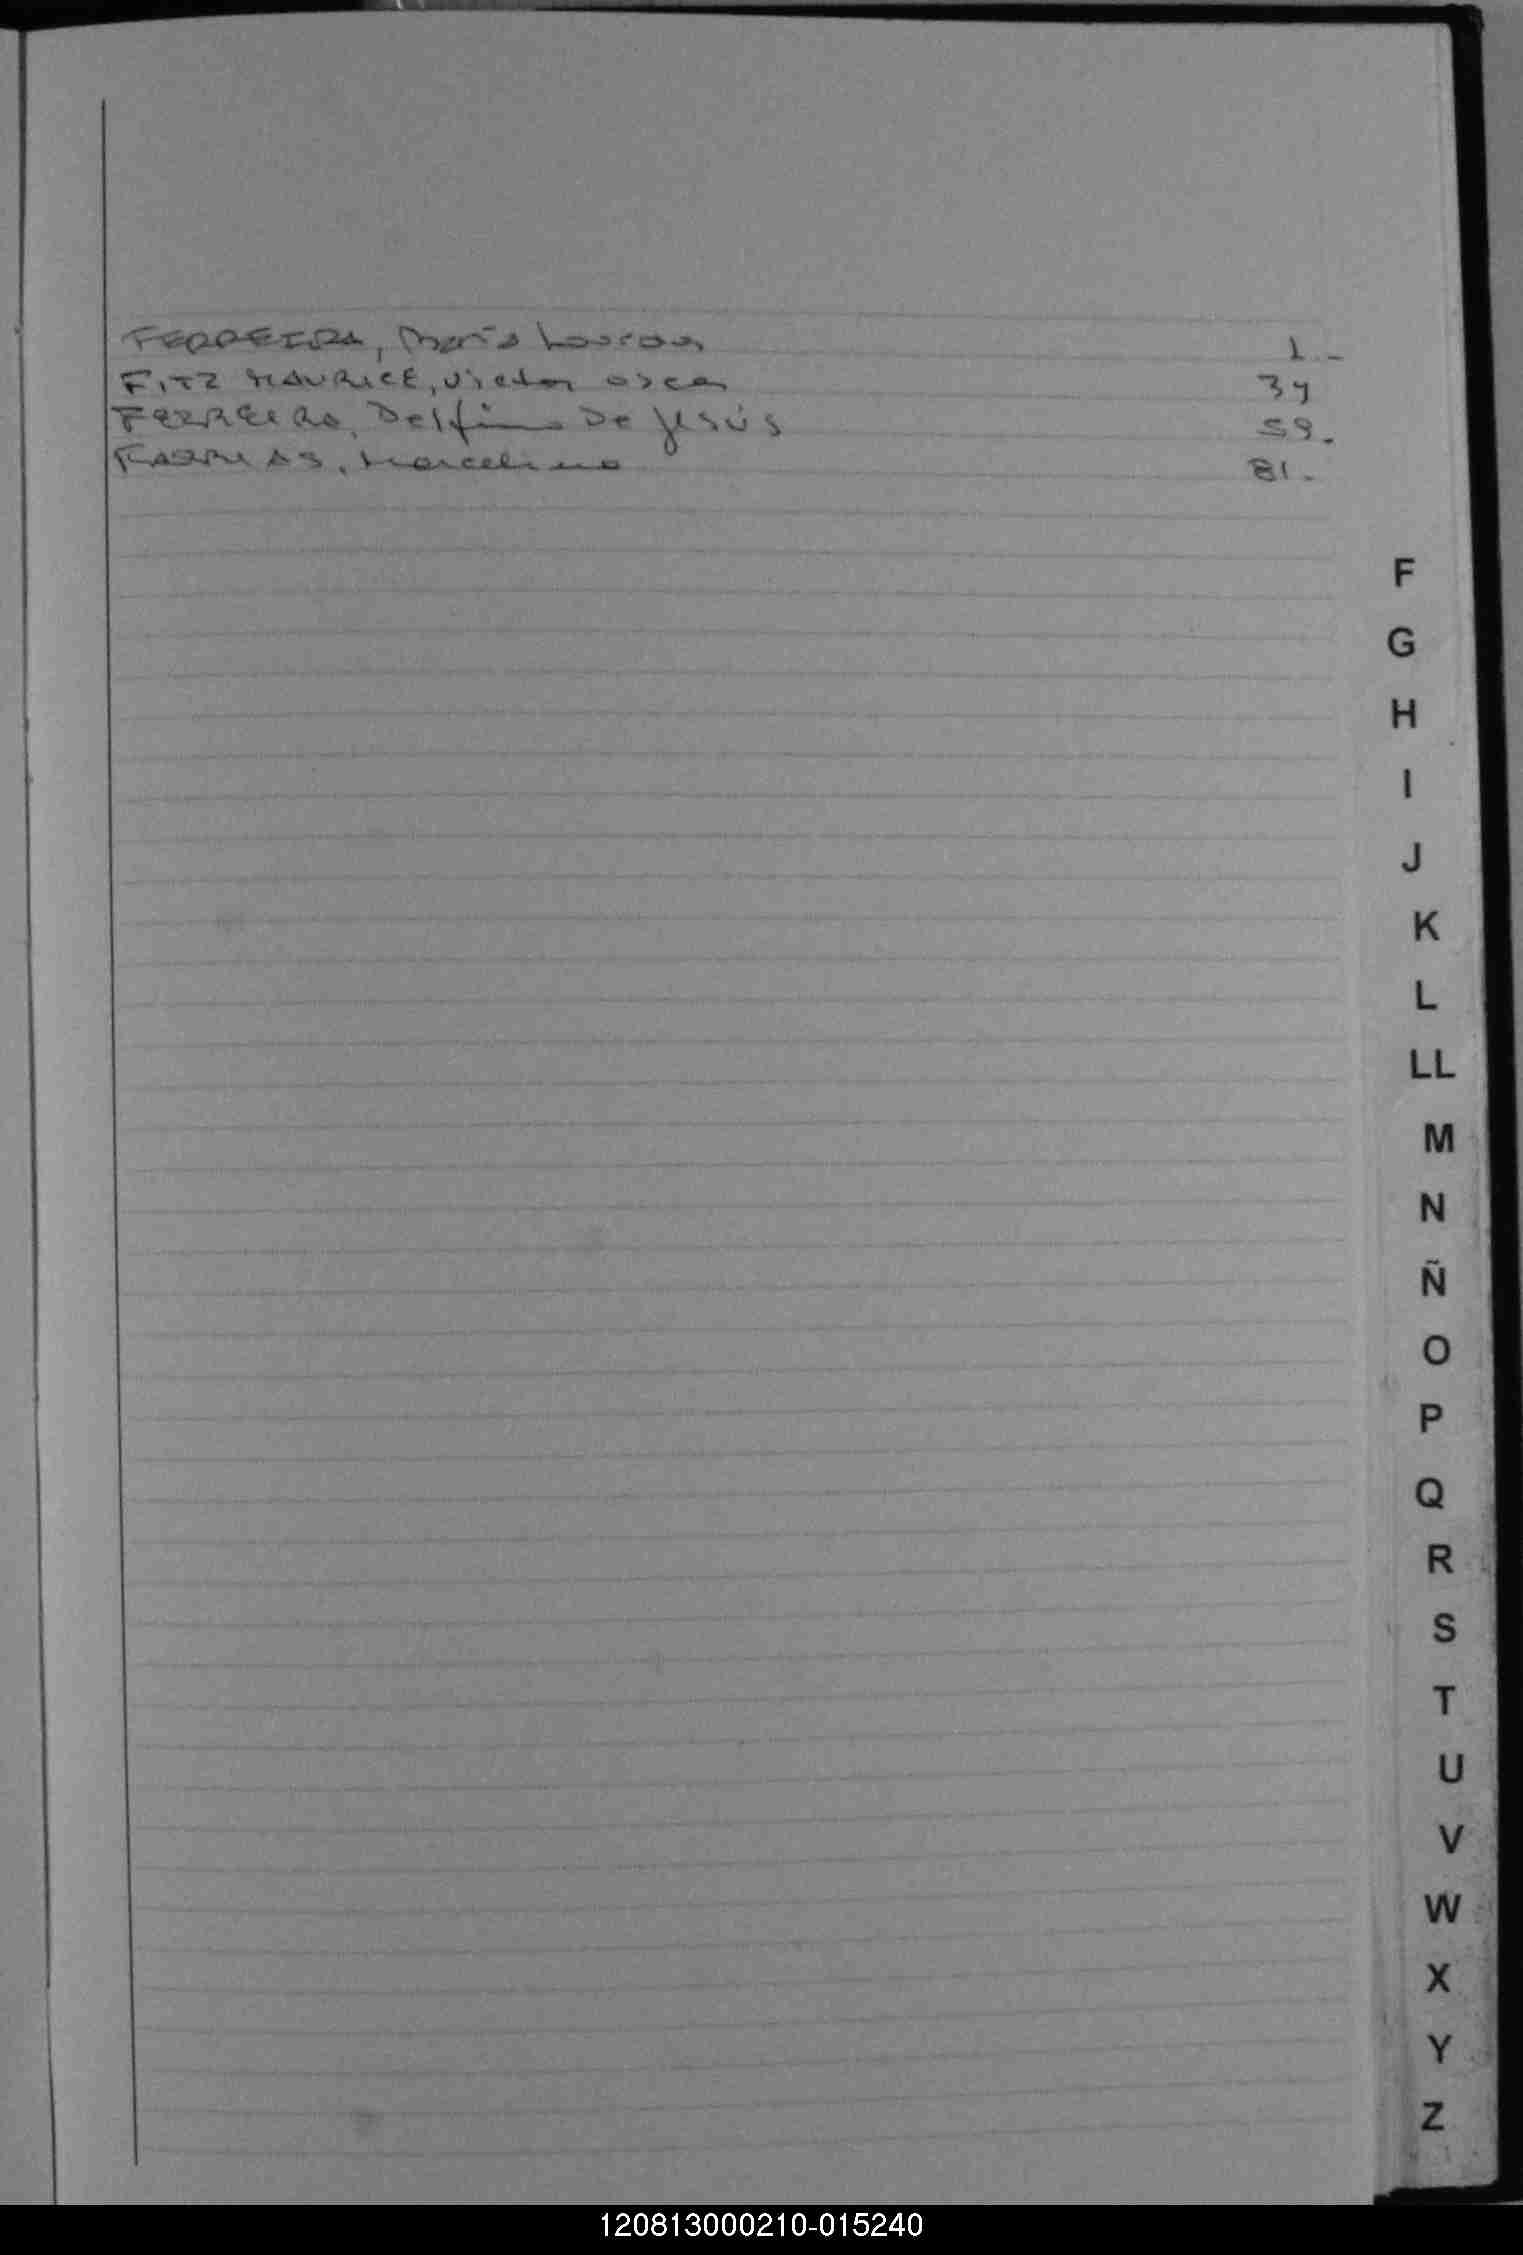 FERREIRA, María 1.-
FITZ MAURICE, Victor Oscar 34
FERREIRO, Delfino De Jesús 59.
FARRIAS, Marcelino 81.-
F
G
H
I
J
K
L
LL
M
N
Ñ
O
P
Q
R
S
T
U
V
W
X
Y
Z
120813000210-015240